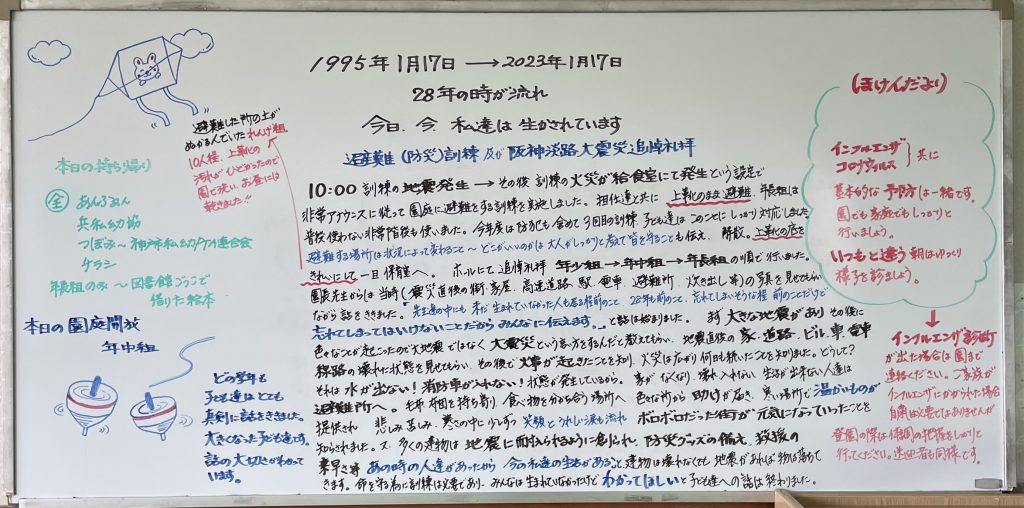 1995年1月17日 → 2023年1月17日
28年の時が流れ
今日、今 私達は 生かされています
避難(防災)訓練 及び 阪神淡路大震災追悼礼拝
避難した所の土が
ぬかるんでいた れんげ組
10人程、上靴の
汚れがひどかったので
園で洗い、お昼には
乾きました!!
本日の持ち帰り
金 あんふぁん
兵私幼協
つぼみ~神戸市私立幼稚園連合会
チラシ
年長組のみ~図書館ごっこで
借りた絵本
本日の園庭開放
年中組
どの学年も
子ども達はとても
真剣に話をききました。
大きくなった子ども達です。
話の大切さがわかって
います。
10:00 訓練の地震発生 → その後 訓練の火災が給食室にて発生という設定で
非常アナウンスに従って園庭に避難をする訓練を実施しました。担任達と共に 上靴のまま避難、年長組は
普段使わない非常階段も使いました。今年度は防犯も含めて3回目の訓練、子ども達はこのことにしっかり対応しました
避難する場所は状況によって変わること~どこがいいのかは大人がしっかりと教えて皆を守ることも伝え、解散。上靴の底を
きれいにして一旦保育室へ。 ホールにて追悼礼拝 年少組→年中組→年長組の順で行いました。
園長先生からは当時(震災直後の街、家屋、高速道路、駅、電車、避難所、炊き出し等)の写真を見せてもらい
ながら話をききました。「先生達の中にも まだ生まれていなかった人も居る程前のこと 28年も前のこと、忘れてしまいそうな程 前のことだけど
忘れてしまってはいけないことだから みんなに伝えます。」と話は始まりました。 まず 大きな地震があり その後に
色々なことが起こったので大地震ではなく 大震災という言い方をするんだと教えてもらい、地震直後の家・道路・ビル・車・電車
線路の壊れた状態を見せてもらい、その後で火事が起きたことを知り、火災は広がり何日も続いたことを知りました。どうして?
それは水が出ない!消防車が入れない!状態が発生しているから。 家がなくなり、壊れ入れない 生活が出来ない人達は
避難所へ。 毛布・布団を持ち寄り、食べ物を分ち合う場所へ 色々な所から助けが届き、寒い場所で温かいものが
提供され 悲しみ 苦しみ、寒さの中に少しずつ 笑顔とうれし涙も流れ ボロボロだった街が元気になっていったことを
知らされました。又、多くの建物は地震に耐えられるように創られ、防災グッズの備え、救援の
素早さ等 あの時の人達があったから 今の私達の生活があること、建物は壊れなくても 地震があれば物は落ちて
きます。命を守る為に訓練は必要であり、みんなは生まれていなかったけど わかってほしいと子ども達への話は終わりました。
(ほけんだより)
インフルエンザ
コロナウィルス
共に
基本的な予防は一緒です。
園でも家庭でもしっかりと
行いましょう。
いつもと違う 朝はゆっくり
様子を診ましょう。
インフルエンザ診断
が出た場合は園まで
連絡ください。ご家族が
インフルエンザにかかられた場合
自粛は必要ではありませんが
登園の際は体調の把握をしっかりと
行ってください。送迎者も同様です。